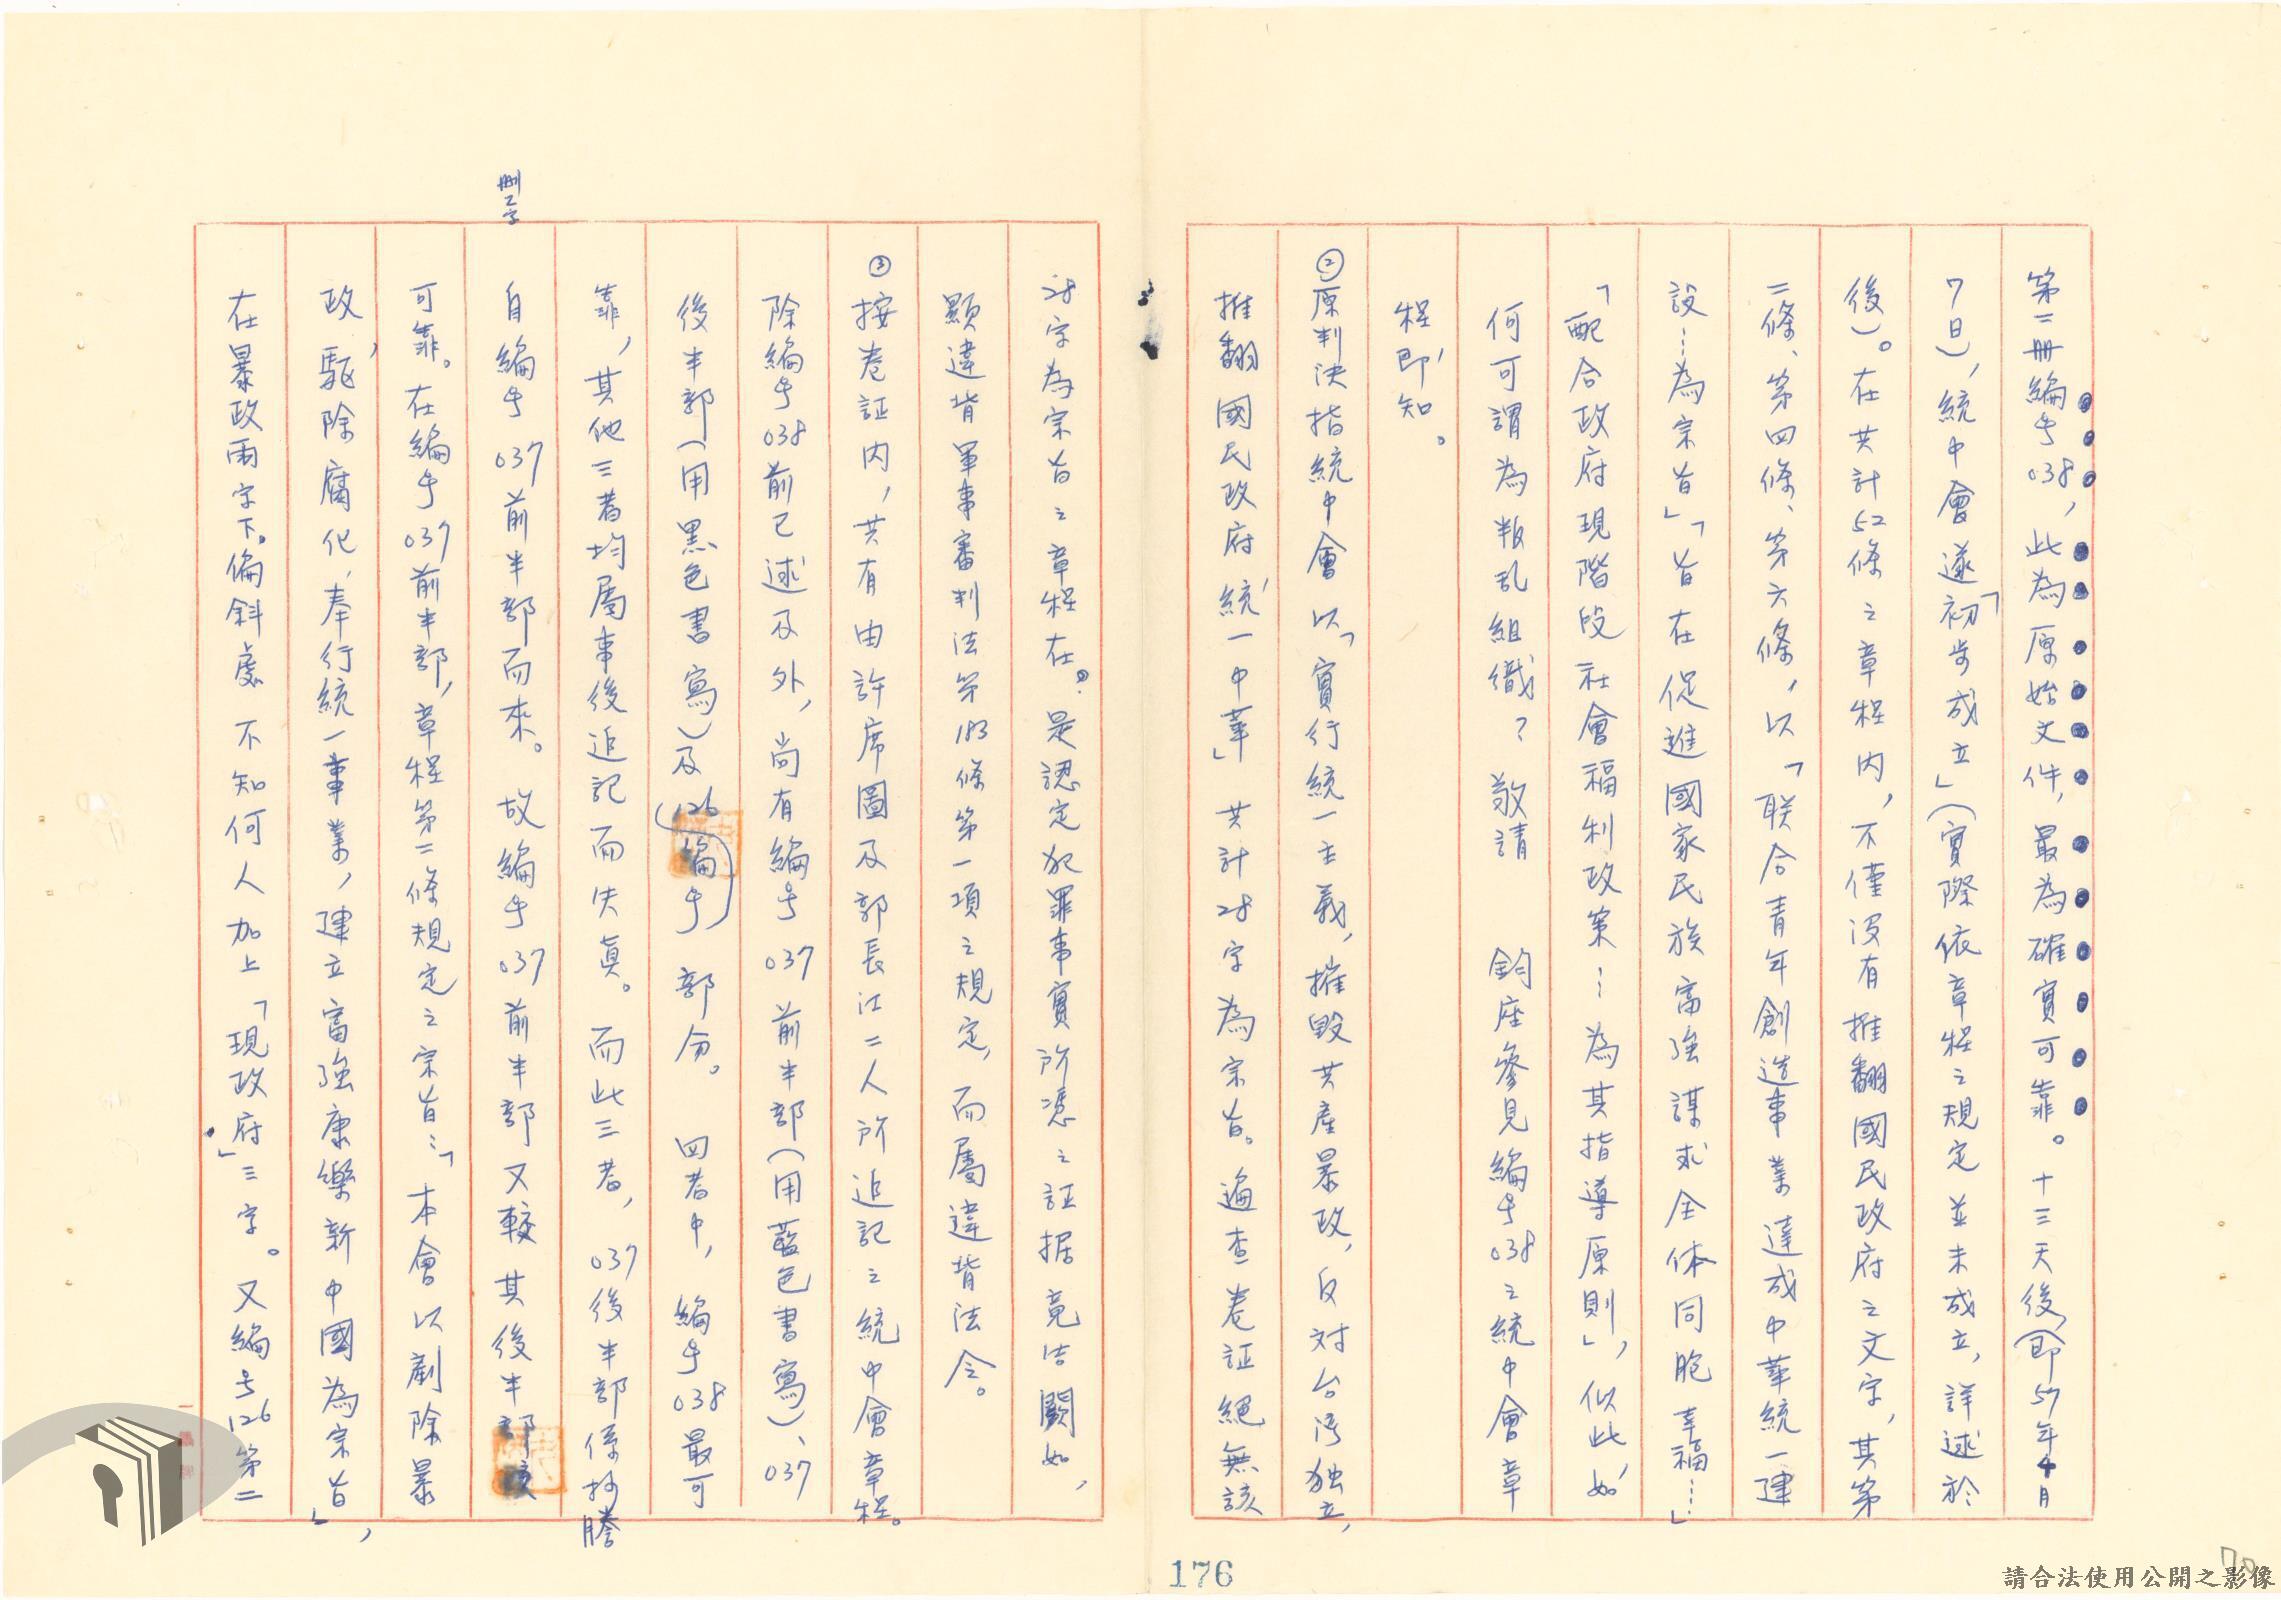 第二冊編号038，此為原始文件，最為確實可靠。十三天後(即57年4月
7日)，統中會遂「初步成立」(實際依章程之規定並未成立，詳述於
後)。在共計52條之章程內，不僅沒有推翻國民政府之文字，其第
二條、第四條、第六條，以「联合青年創造事業達成中華統一建
設…為宗旨」「旨在促進國家民族富強謀求全体同胞幸福……」
「配合政府現階段社會福利政策…為其指導原則」，似此，如
何可謂為叛乱組織？敬請 鈞座參見編号038之統中會章
程即知。
②原判決指統中會以「實行統一主義，摧毀共產暴政，反对台湾独立，
推翻國民政府統一中華」共計28字為宗旨。遍查卷証絕無該
28字為宗旨之章程在。是認定犯罪事實所憑之証据竟告闕如，
顯違背軍事審判法第183條第一項之規定，而屬違背法令。
③按卷証內，共有由許席圖及郭長江二人所追記之統中會章程。
除編号038前已述及外，尚有編号037前半部(用藍色書寫)、037
後半部(用黑色書寫)及(126編号)部份。四者中，編号038最可
靠，其他三者均屬事後追記而失真。而此三者，037後半部係抄謄
自編号037前半部而來。故編号037前半部又較其後半部
刪2字
可靠。在編号037前半部，章程第二條規定之宗旨：「本會以剷除暴
政，驅除腐化，奉行統一事業，建立富強康樂新中國為宗旨」，
在暴政兩字下。偏斜處不知何人加上「現政府」三字。又編号126第二
176
70
請合法使用公開之影像